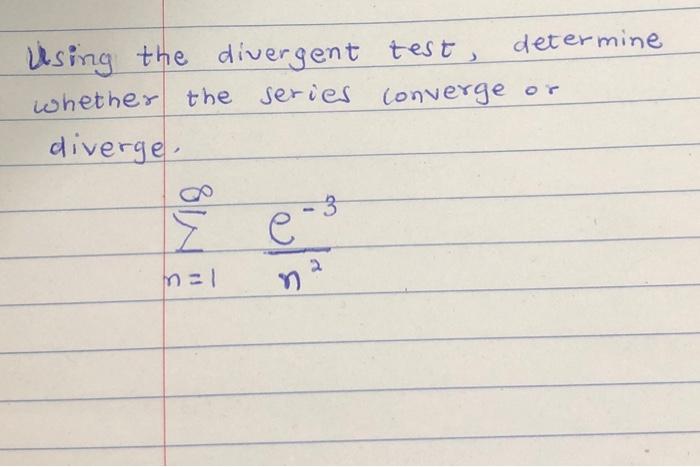 Using the divergent test, determine
whether the series converge or
diverge.
∞
Σ e^-3
n=1 n^2